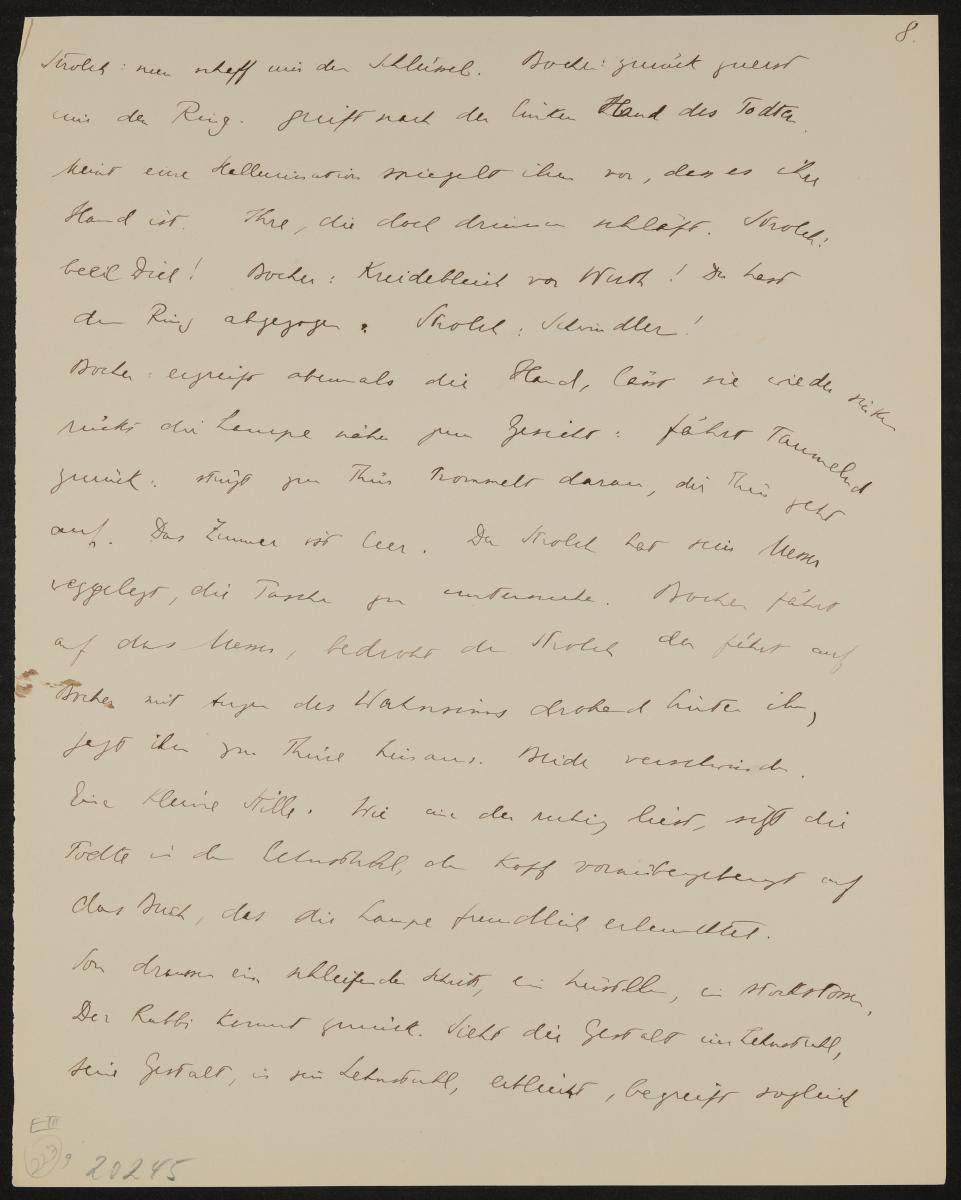 8.
Strolch: nun schaff mir den Schlüssel. Bocher: zurück zuerst
mir den Ring. greift nach der linken Hand des Todten.
Meint eine Hallucination spiegelt ihm vor, dass es ihre
Hand ist. Ihre, die doch drinnen schläft. Strolch:
beeil Dich! Bocher: Kreidebleich vor Wuth! Du hast
den Ring abgezogen. Strolch: Schwindler!
Bocher: ergreift abermals die Hand, lässt sie wieder sinken
rückt die Lampe näher zum Gesicht: fährt Taumelnd
zurück: stürzt zur Thür Trommelt daran, die Thür geht
auf. Das Zimmer ist leer. Der Strolch hat sein Messer
weggelegt, die Tasche zu untersuchen. Bocher fährt
auf das Messer, bedroht den Strolch der fährt auf
Bocher mit Augen des Wahnsinns drohend hinter ihm,
jagt ihn zur Thüre hinaus. Beide verschwinden.
Eine kleine Stille. Wie einer der ruhig liest, sitzt die
Todte in dem Lehnstuhl, den Kopf vornübergebeugt auf
das Buch, das die Lampe freundlich erleuchtet.
Von draussen ein schleifender Schritt, ein Hüsteln, ein Stockstossen,
Der Rabbi kommt zurück. Sieht die Gestalt im Lehnstuhl,
seine Gestalt, in sein Lehnstuhl, erbleicht, begreift sogleich
E III
223 9
20245